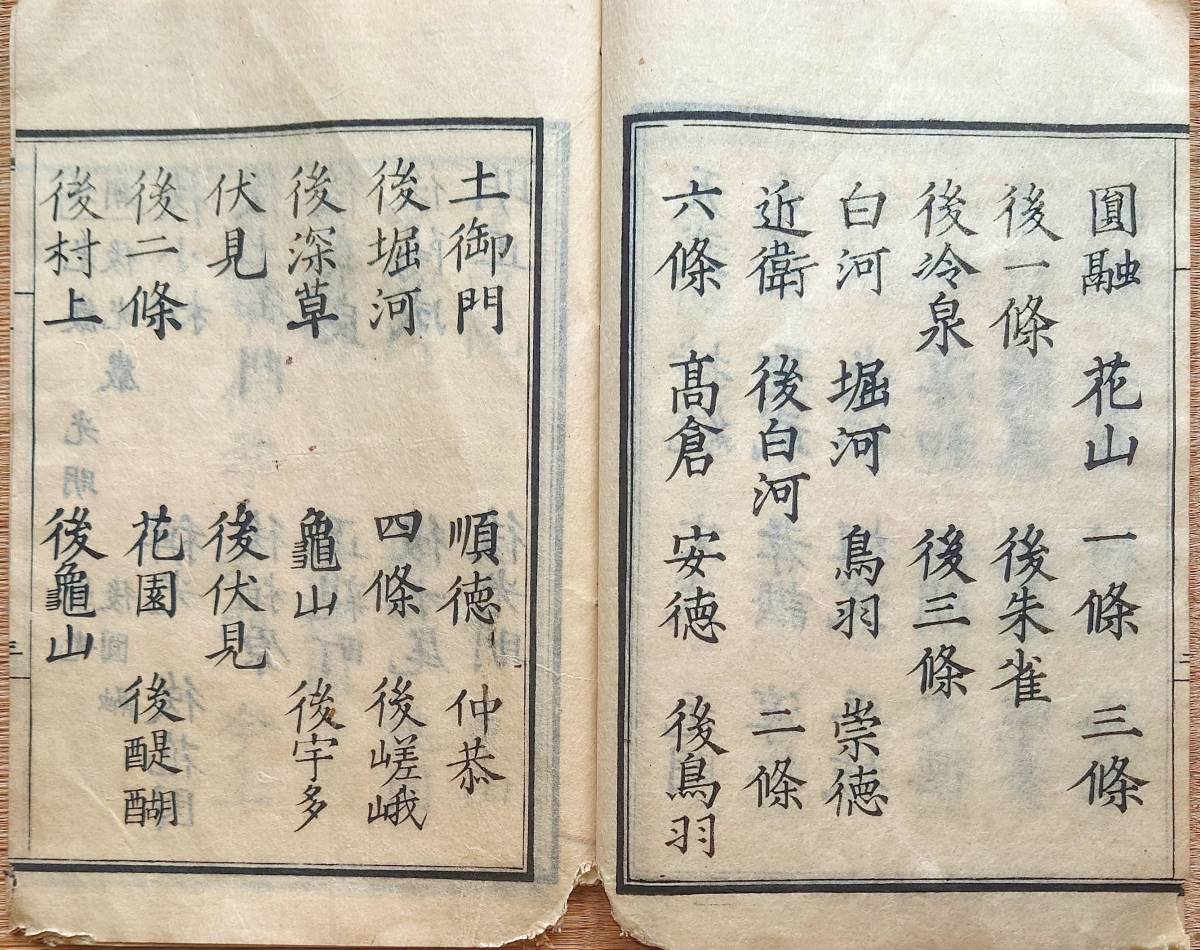 圓融 花山 一條 三條
後一條 後朱雀
後冷泉 後三條
白河 堀河 鳥羽 崇徳
近衛 後白河 二條
六條 髙倉 安徳 後鳥羽
土御門 順徳 仲恭
後堀河 四條 後嵯峨
後深草 龜山 後宇多
伏見 後伏見
後二條 花園 後醍醐
後村上 後龜山